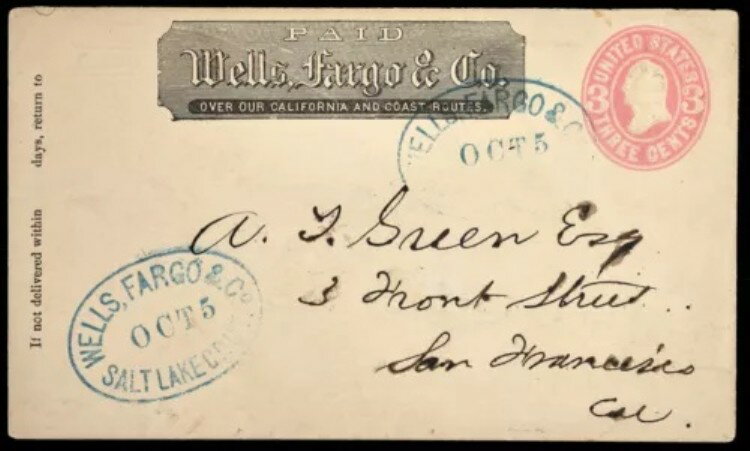 PAID
Wells, Fargo & Co.
OVER OUR CALIFORNIA AND COAST ROUTES.
UNITED STATES
3 3
THREE CENTS
WELLS, FARGO & C
OCT 5
If not delivered within days, return to
A. T. Green Esq
3 Front Street.
San Francisco
Cal.
WELLS, FARGO & Co
OCT 5
SALT LAKE C